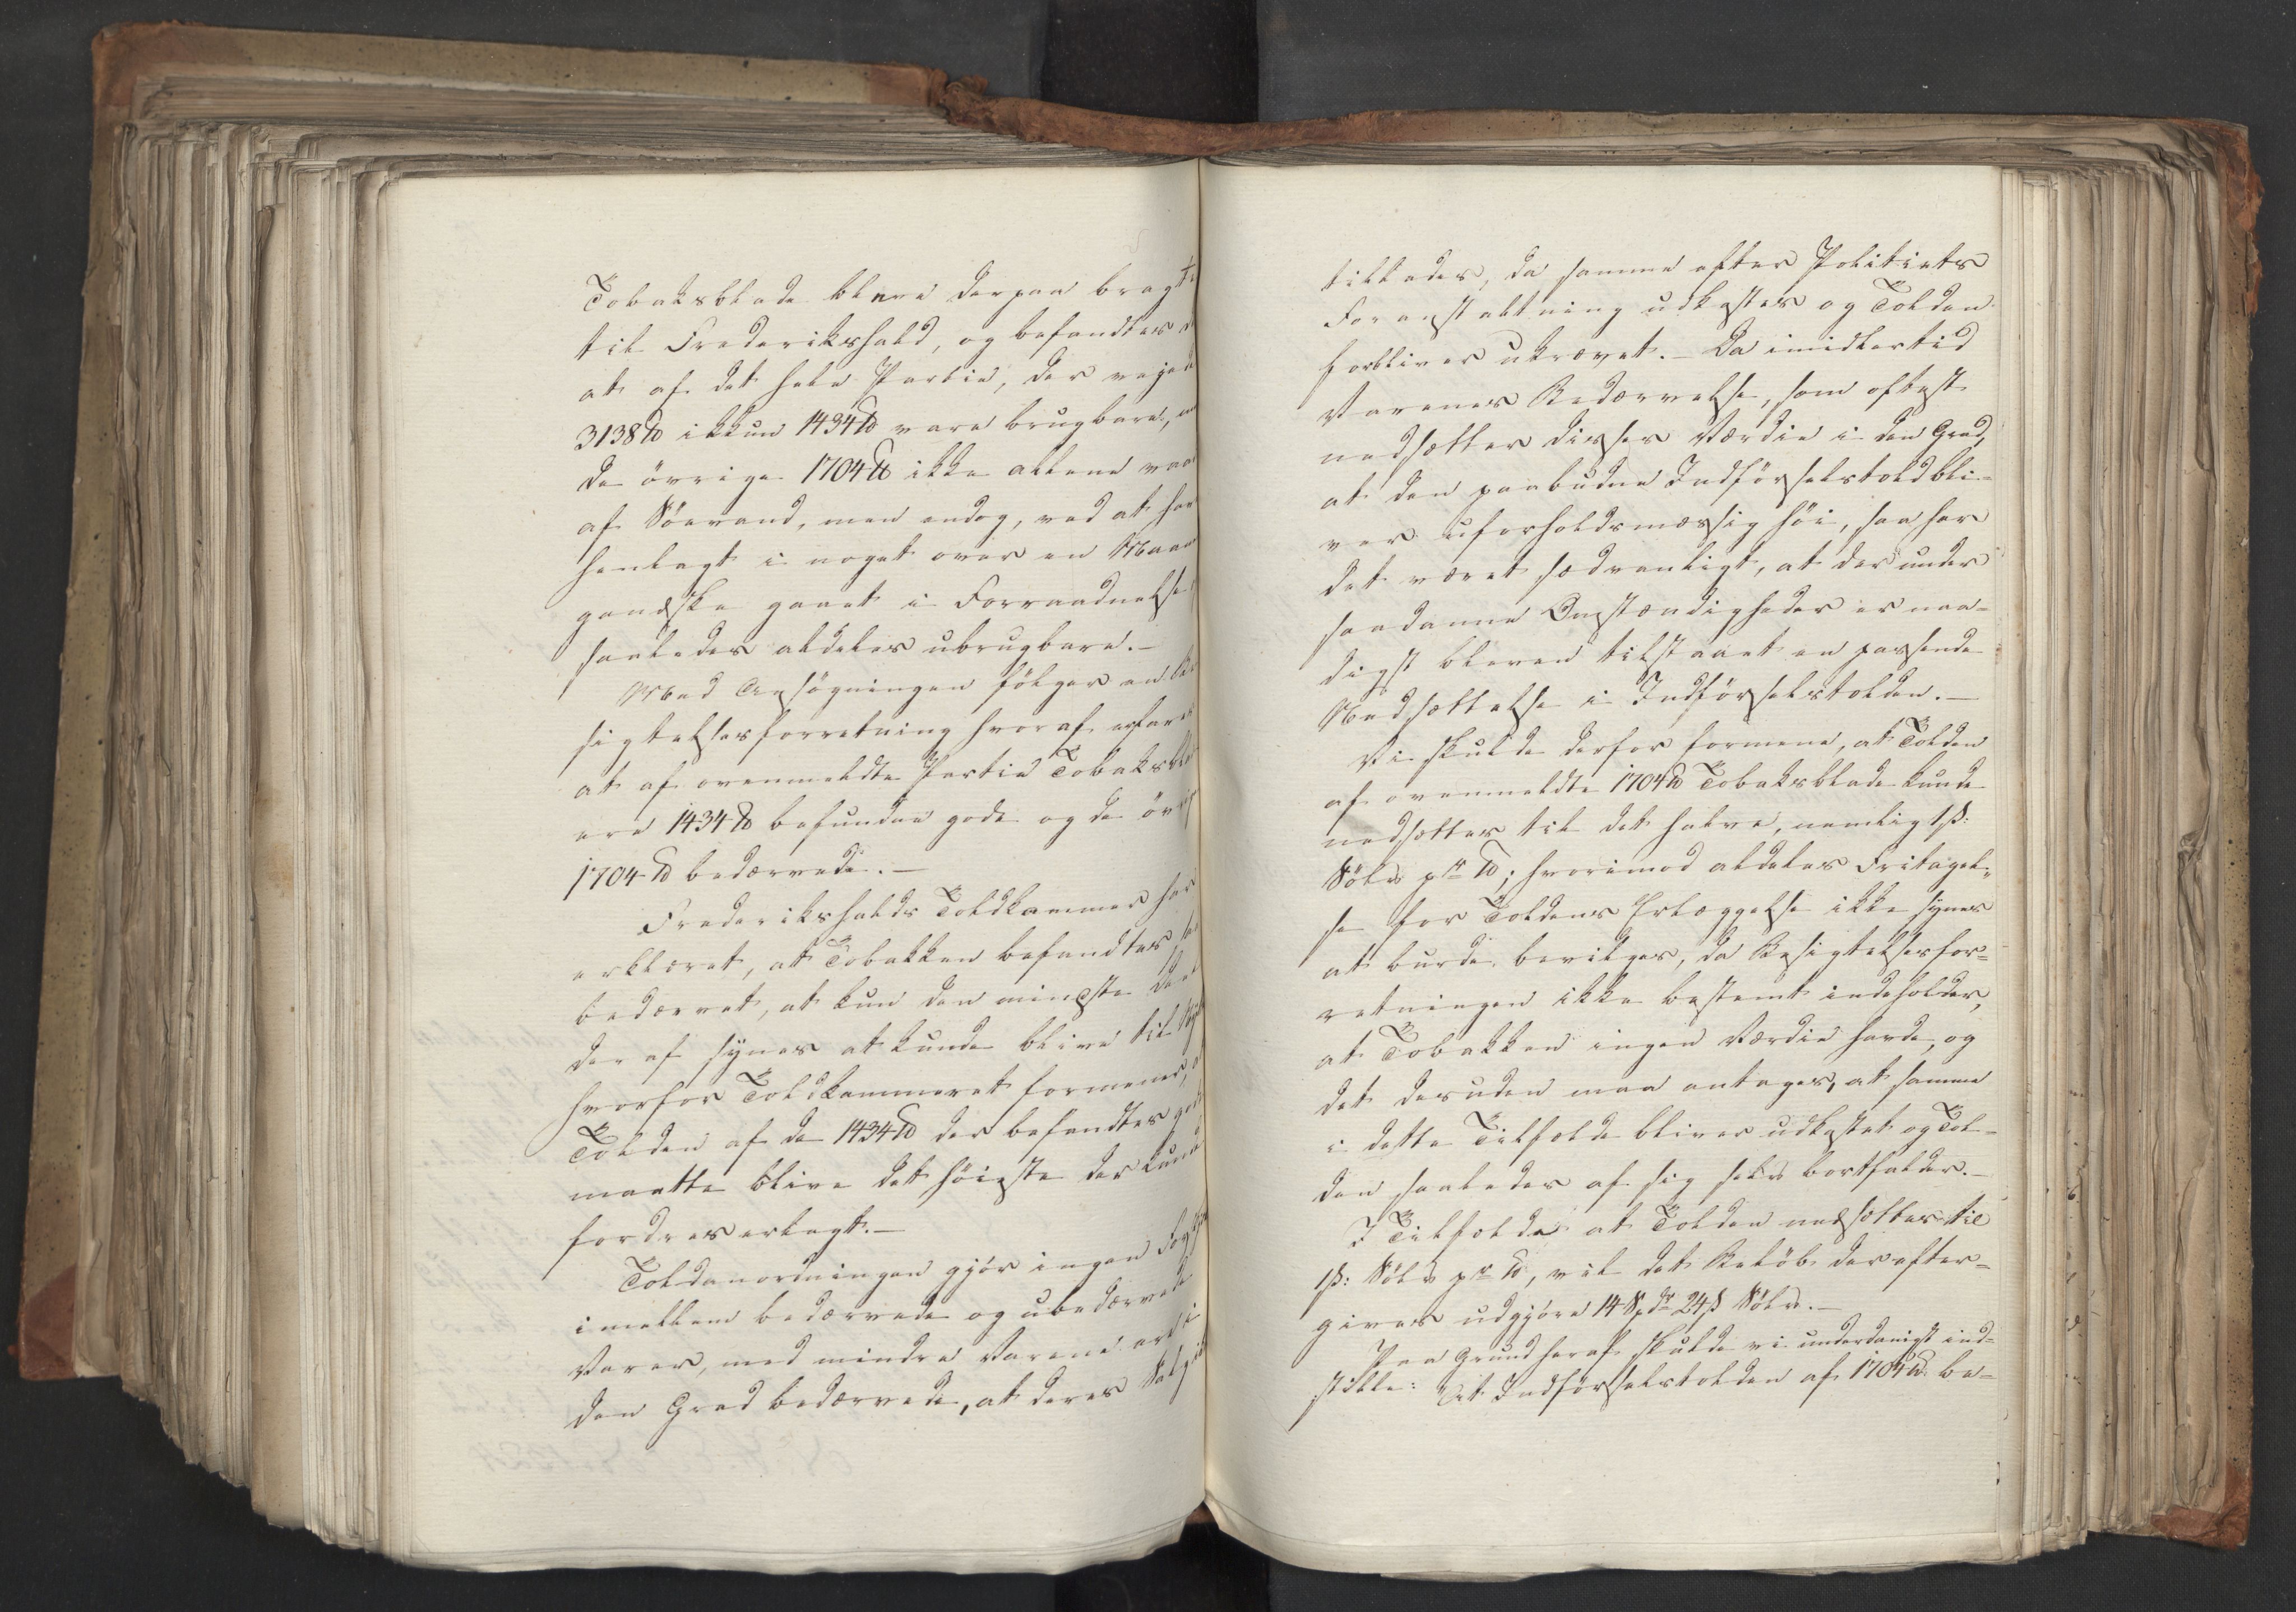 Tobaksblade bleve derpaa bragt
til Frederikshald, og befandtes
at af det hele Partie, der vejede
3138 ℔ ikkun 1434 ℔ vare brugbare,
de övrige 1704 ℔ ikke allene
af Söevand, men endog, ved at
henlagt i noget over en Maaned
gandske gaaet i Forraadnelse
saaledes aldeles ubrugbare.-
Med Ansögningen fölger en Be-
sigtelsesforretning hvoraf erfares
at af ovenmeldte Partie Tobaksblade
ere 1434 ℔ befundne gode og de övrige
1704 ℔ bedærvede.-
Frederikshalds Toldkammer har
erklæret, at Tobakken befandtes saa
bedærvet, at kun den mindste Deel
deraf synes at kunde blive til
hvorfor Toldkammeret formener,
Tolden af de 1434 ℔ der befandtes gode
maatte blive det höieste der kunde
fordres erlagt.-
Toldanordningen gjör ingen
imellem bedærvede og ubedærvede
Varer, med mindre Varene ere i
den Grad bedærvede, at deres Salg
tillades, da samme efter Politiets
Foranstaltning udkastes og Tolden
forbliver ukrævet.- Da imidlertid
Varenes Bedærvelse, som oftest
nedsætter disses Værdie i den Grad,
at den paabudne Indförselstold bli-
ver uforholdsmæssig höi, saa har
det været sædvanligt, at der under
saadanne Omstændigheder er naa-
digst bleven tilstaaet en passende
Nedsættelse i Indförselstolden.-
Vi skulde derfor formene, at Tolden
af ovenmeldte 1704 ℔ Tobaksblade kunde
nedsættes til det halve, nemlig 1ß:
Sölv pr ℔; hvorimod aldeles Fritagel-
se for Toldens Erlæggelse ikke synes
at burde bevilges, da Besigtelsesfor-
retningen ikke bestemt indeholder,
at Tobakken ingen Værdie havde, og
det desuden maa antages, at samme
i dette Tilfælde bliver udkastet og Tol-
den saaledes af sig selv bortfalder.-
I Tilfælde at Tolden nedsættes til
1ß: Sölv pr ℔, vil det Belöb der efter-
gives udgjöre 14 Spdr 24ß Sölv.-
Paa Grund heraf skulde vi underdanigst ind-
stille: At Indförselstolden af 1704 ℔ be-